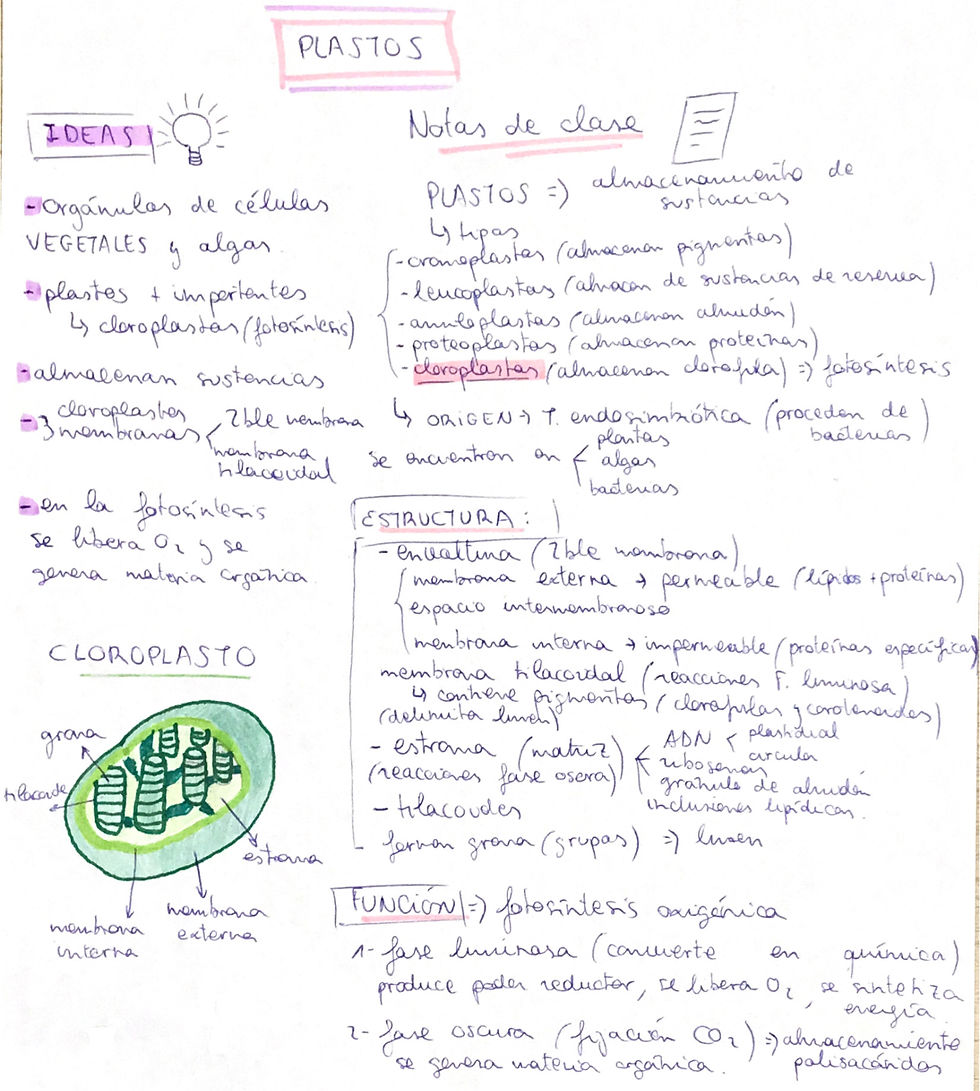 PLASTOS
IDEAS
- Orgánulos de células
VEGETALES y algas.
- plastos + importantes
↳ cloroplastos (fotosíntesis)
- almacenan sustancias
- cloroplastos
3 membranas < 2ble membrana
membrana
tilacoidal
- en la fotosíntesis
se libera O₂ y se
genera materia orgánica.
CLOROPLASTO
grana
tilacoide
estroma
membrana
interna
membrana
externa
Notas de clase
PLASTOS => almacenamiento de
sustancias
↳ tipos
- cromoplastos (almacenan pigmentos)
- leucoplastos (almacen de sustancias de reserva)
- amiloplastos (almacenan almidón)
- proteoplastos (almacenan proteínas)
- cloroplastos (almacenan clorofila) => fotosíntesis
↳ ORIGEN → T. endosimbiótica (proceden de
bacterias)
se encuentran en < plantas
algas
bacterias
ESTRUCTURA:
- envoltura (2ble membrana)
membrana externa → permeable (lípidos + proteínas)
espacio intermembranoso
membrana interna → impermeable (proteínas específicas)
membrana tilacoidal (reacciones F. luminosa)
↳ contiene pigmentos (clorofilas y carotenoides)
(delimita lumen)
- estroma (matriz) < ADN < plastidial
circular
(reacciones fase oscura) ribosomas
gránulo de almidón
inclusiones lipídicas.
- tilacoides
forman grana (grupos) => lumen
FUNCIÓN => fotosíntesis oxigénica
1- fase luminosa (convierte en química)
produce poder reductor, se libera O₂, se sintetiza
energía.
2- fase oscura (fijación CO₂) => almacenamiento
se genera materia orgánica. polisacáridos